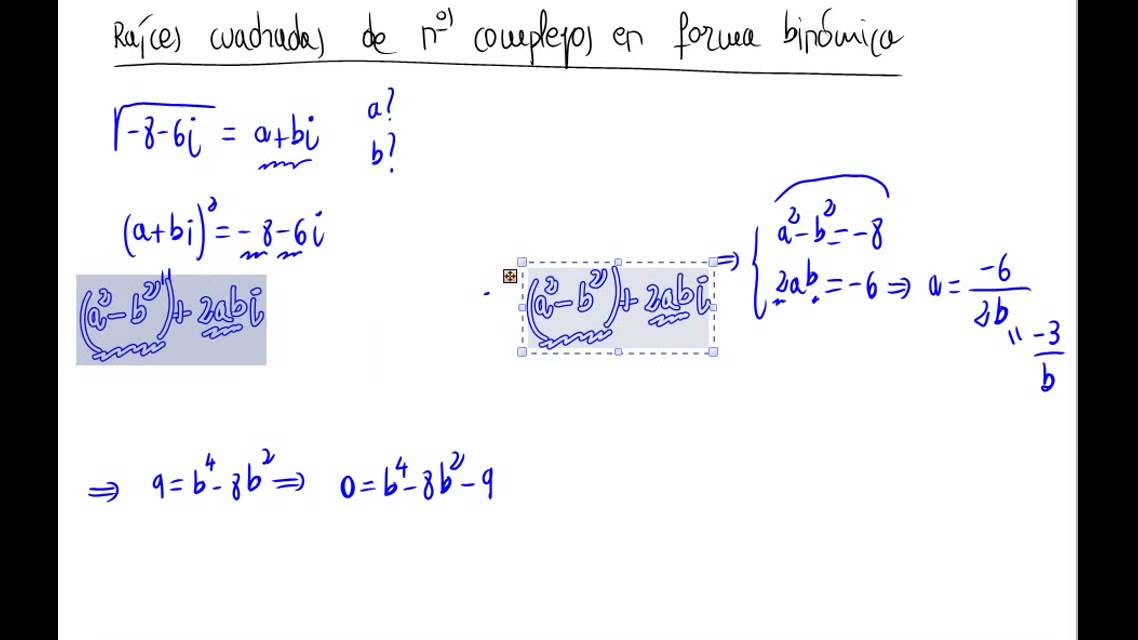 Raíces cuadradas de nºs complejos en forma binómica
√-8-6i = a+bi a?
b?
(a+bi)² = -8-6i
(a²-b²)+2abi
(a²-b²)+2abi ⇒ { a²-b²=-8
2ab=-6 ⇒ a = -6/2b
" -3/b
⇒ 9=b⁴-8b² ⇒ 0=b⁴-8b²-9